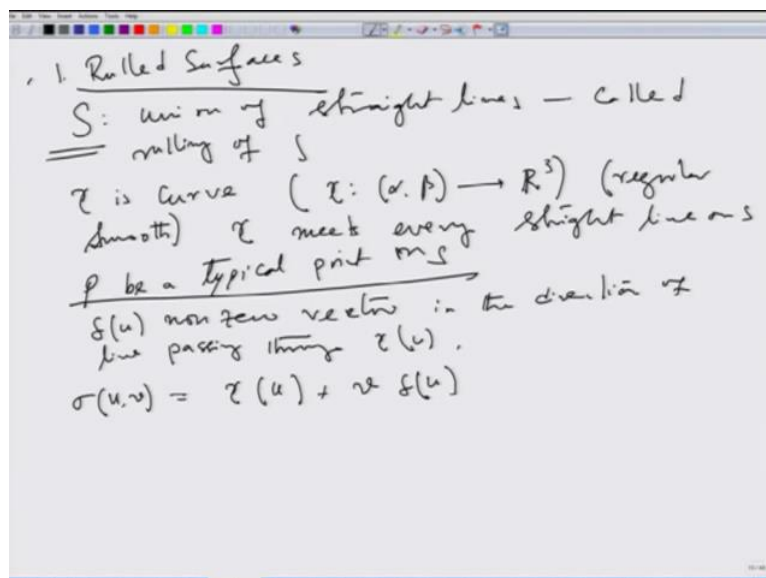 1. Rulled Surfaces
S: union of straight lines – called
rulling of S
γ is curve (γ: (α, β) ⟶ R³) (regular
smooth) γ meets every straight line on S
p be a typical point on S
δ(u) non zero vector in the direction of
line passing through γ(u).
σ(u,v) = γ(u) + v δ(u)